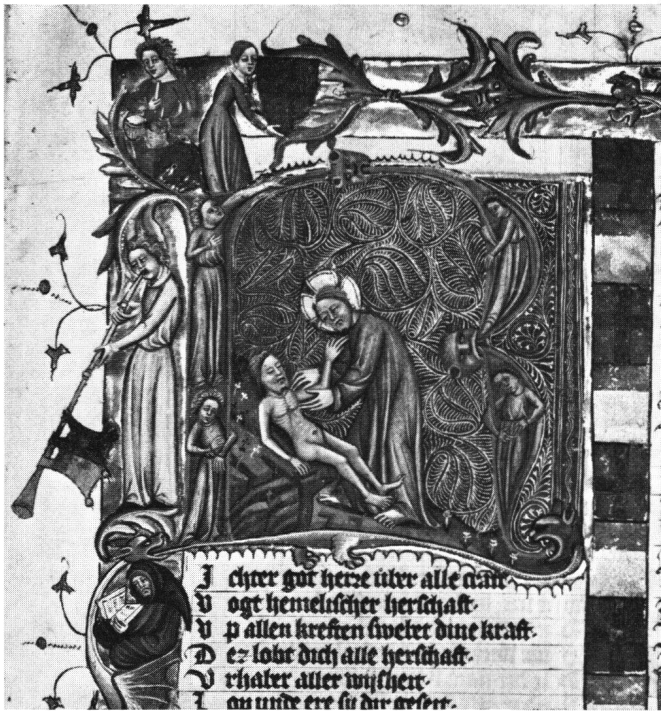 R
I chter got herre über alle craft·
V ogt hemelischer herschaft·
V p allen kreften swebet dine kraft·
D ez lobt dich alle herschaft·
V rhaber aller wysheit·
unde ere sy dir geseit·